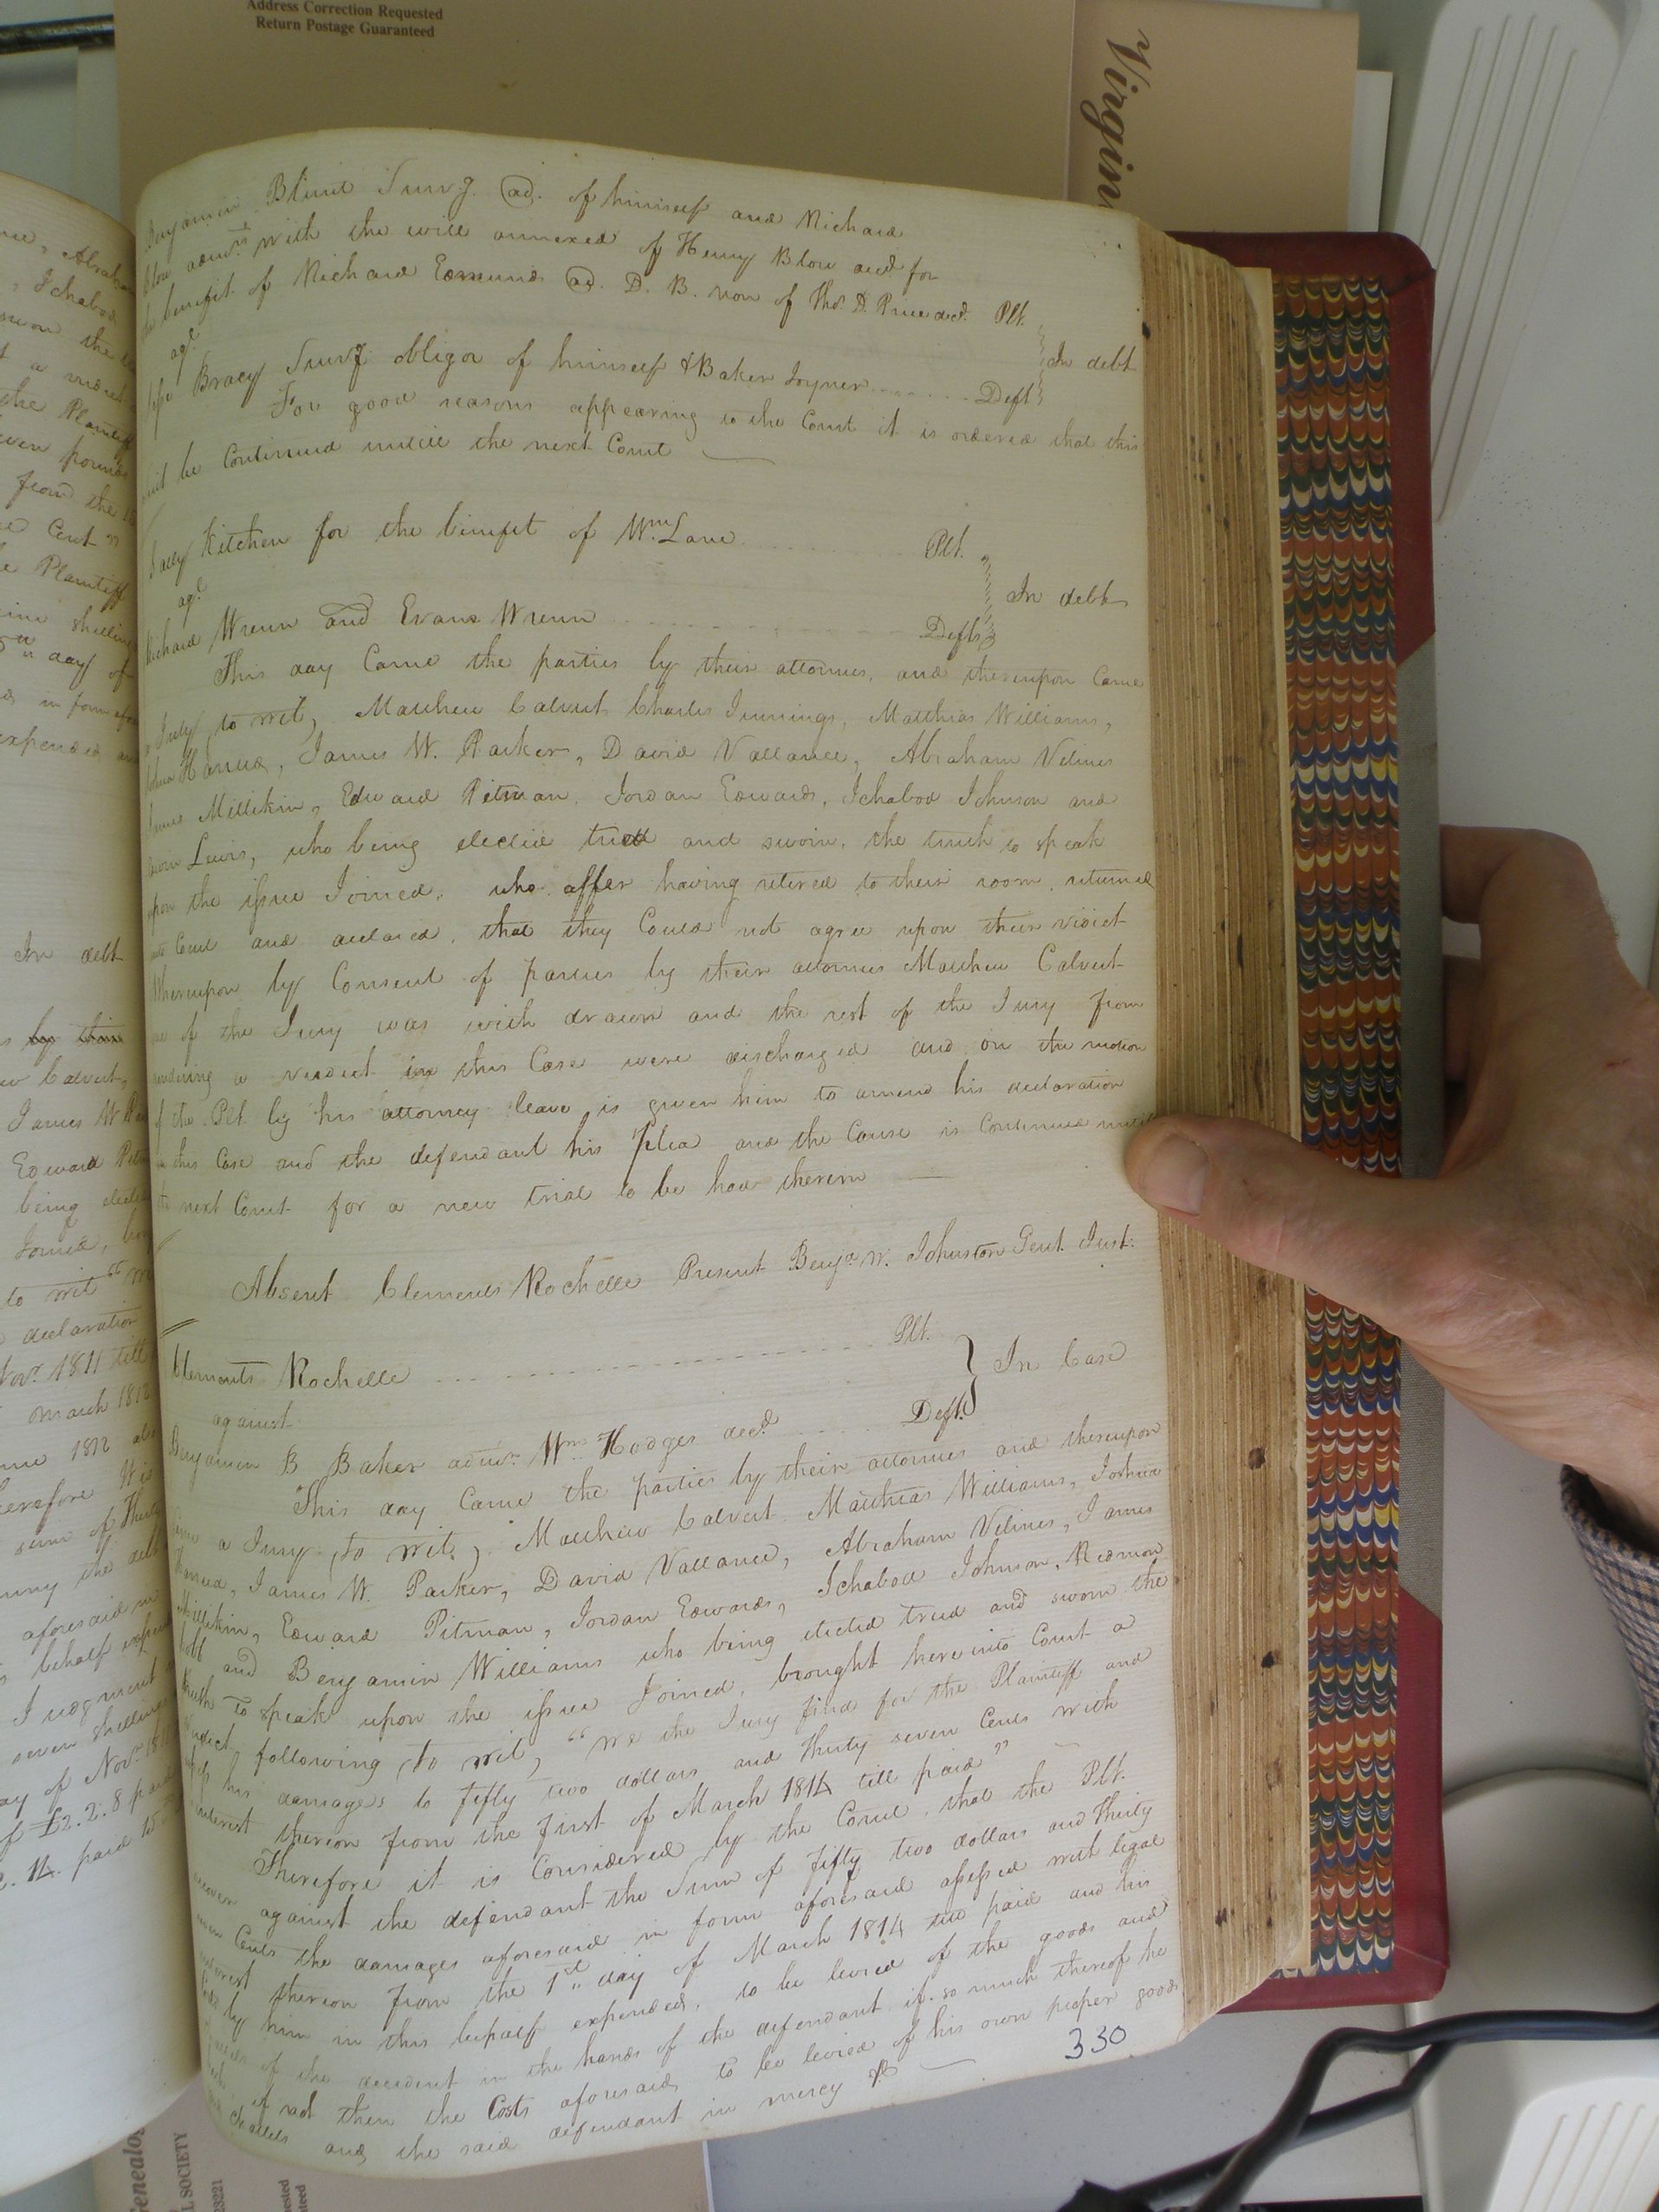 Address Correction Requested
Return Postage Guaranteed
Virgin
Benjamin Blunt Survg. ad. of himself and Richard
Blow admrs. with the will annexed of Henry Blow decd for
the benefit of Richard Edmunds ad. D. B. non of Thos. D. Price decd. Plt.
agt.
Bracy Survg obligor of himself & Baker Joyner Deft
In debt
For good reasons appearing to the Court it is ordered that this
suit be Continued untill the next Court
Sally Kitchen for the benifit of Wm. Lane Plt.
agt.
In debt
Richard Wrenn and Evans Wrenn Defts
This day Came the parties by their attornies, and thereupon Came
a Jury, to wit, Matthew Calvert Charles Jennings, Matthias Williams,
James W. Parker, David Vallance, Abraham Velines
James Millikin, Edward Pitman, Jordan Edwards, Ichabod Johnson and
Lewis, who being elected tried and sworn, the truth to speak
upon the issue Joined, who after having retired to their room, returned
into Court and declared, that they Could not agree upon their virdict
Whereupon by Consent of parties by their attornies Matthew Calvert
one of the Jury was with drawn and the rest of the Jury from
rendering a verdict in this Case were discharged and on the motion
of the Plt. by his attorney leave is given him to amend his declaration
in this Case and the defendant his Plea and the Cause is Continued untill
the next Court for a new trial to be had therein
Absent Clements Rochelle Present Benja. W. Johnston Gent. Just.
Clements Rochelle Plt.
In Case
against
Benjamin B Baker admr. Wm. Hodges decd. Deft.
This day Came the parties by their attornies and thereupon
came a Jury, to wit, Matthew Calvert, Matthias Williams, Joshua
James W. Parker, David Vallance, Abraham Velines, James
Millikin, Edward Pitman, Jordan Edwards, Ichabod Johnson, Redmon
and Benjamin Williams who being elected tried and sworn the
truth to speak upon the issue Joined, brought here into Court a
virdict following, to wit, "We the Jury find for the Plaintiff and
assess his damages to fifty two dollars and thirty seven Cents with
interest thereon from the first of March 1814 till paid"
Therefore it is Considered by the Court, that the Plt.
recover against the defendant the Sum of fifty two dollars and thirty
seven Cents the damages aforesaid in form aforesaid assessed with legal
interest thereon from the 1st day of March 1814 till paid and his
Costs by him in this behalf expended, to be levied of the goods and
chattels of the decedent in the hands of the defendant if so much thereof he
hath, if not then the Costs aforesaid, to be levied of his own proper goods
and chattels and the said defendant in mercy &c
330
In debt
by their
Calvert,
James W. Par
Edward Pit
being elected
Joined,
to wit "
declaration
Novr. 1811 till
March 1812
1812
therefore
sum of
aforesaid
behalf
Judgment
seven shillings
day of Novr.
of £2.2.8 paid
paid 15
the Plaintiff
seven pounds
from the
Cent "
Plaintiff
nine shillings
day of
in form
expended
Genealog
L SOCIETY
23221